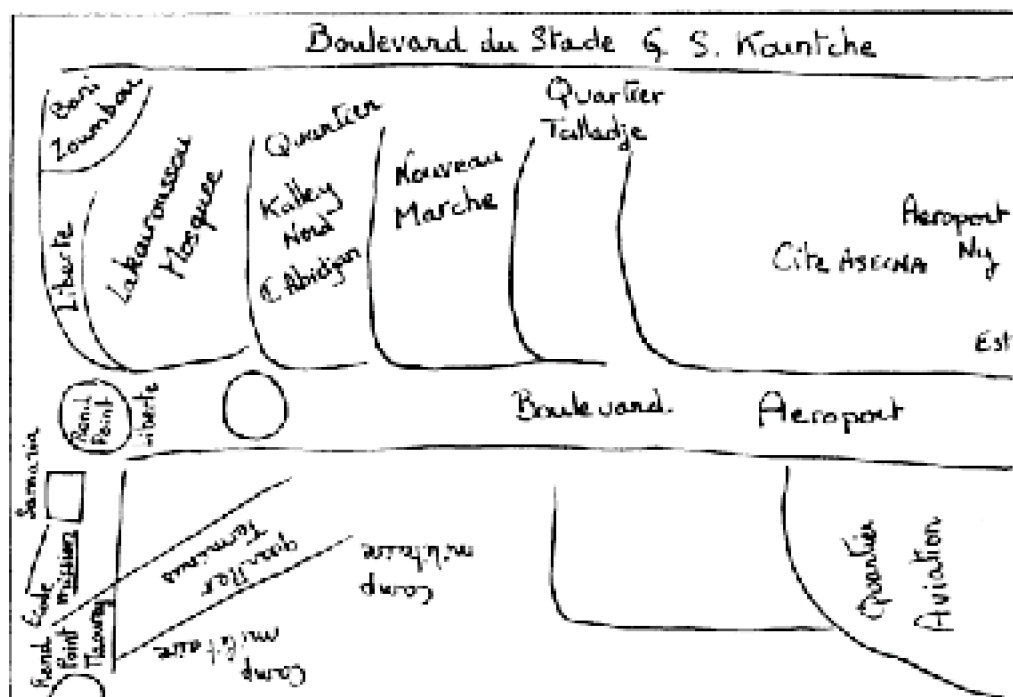 Boulevard du Stade G. S. Kountche
Bani
Zoumbou
Liberte
Lakouroussou
Mosquee
Quartier
Kalley
Nord
E Abidjan
Nouveau
Marche
Quartier
Talladje
Aeroport
Ny
Cite ASECNA
Est
Rond
Point
Liberte
Boulevard
Aeroport
Samaria
Ecole
mission
Rond
Point
quartier
Terminus
Camp
militaire
Camp
militaire
Quartier
Aviation